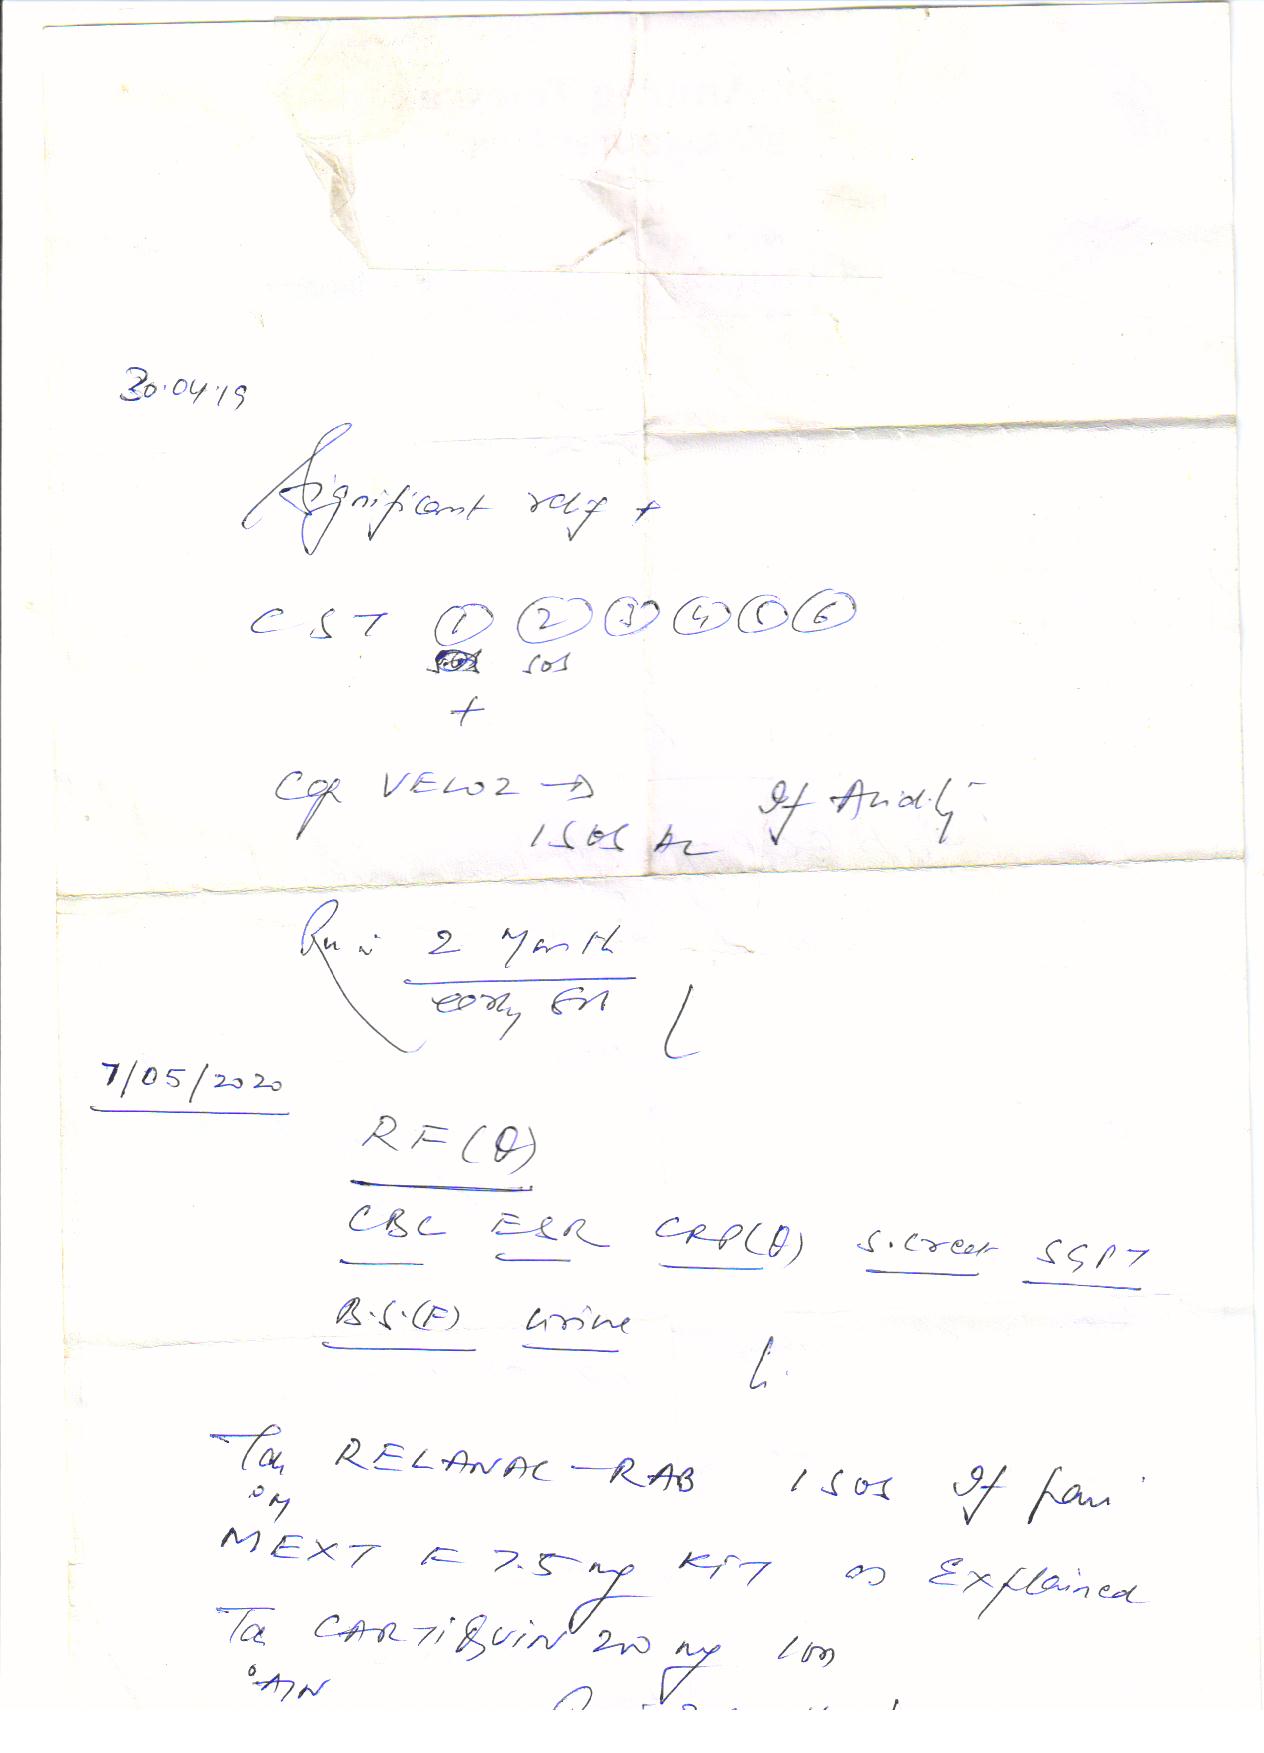 30.04.19
Significant relf +
CST ① ② ③ ④ ⑤ ⑥
SOS SOS
+
Cap VELOZ →
1 SOS AC If Acidity
2 Month
early
7/05/2020
RF(Q)
CBC ESR CRP(Q) S.Creat SGPT
B.S.(F) Urine
Tab RELANAC-RAB 1 SOS If pain
MEXT F 7.5 mg KIT as Explained
Tab CARTIQUIN 200 mg 1 OD